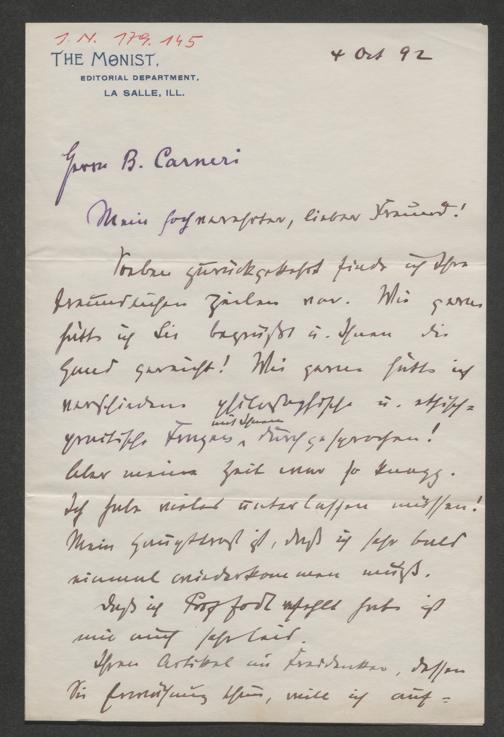 I. N. 179.145
THE MONIST,
EDITORIAL DEPARTMENT,
LA SALLE, ILL.
4 Oct 92
Herrn B. Carneri
Mein hochverehrter, lieber Freund!
Soeben zurückgekehrt finde ich Ihre
freundlichen Zeilen vor. Wie gerne
hätte ich Sie begrüßt u. Ihnen die
Hand gereicht! Wie gerne hätte ich
verschiedene philosophische u. ethisch-
praktische Fragen mit Ihnen durchgesprochen!
Aber meine Zeit war so knapp.
Ich habe vieles unterlassen müssen!
Mein Haupttrost ist, daß ich sehr bald
einmal wiederkommen muß.
Daß ich Prof Jodl verfehlt habe ist
mir auch sehr leid.
Ihren Artikel im Freidenker, dessen
Sie Erwähnung thun, will ich auf-